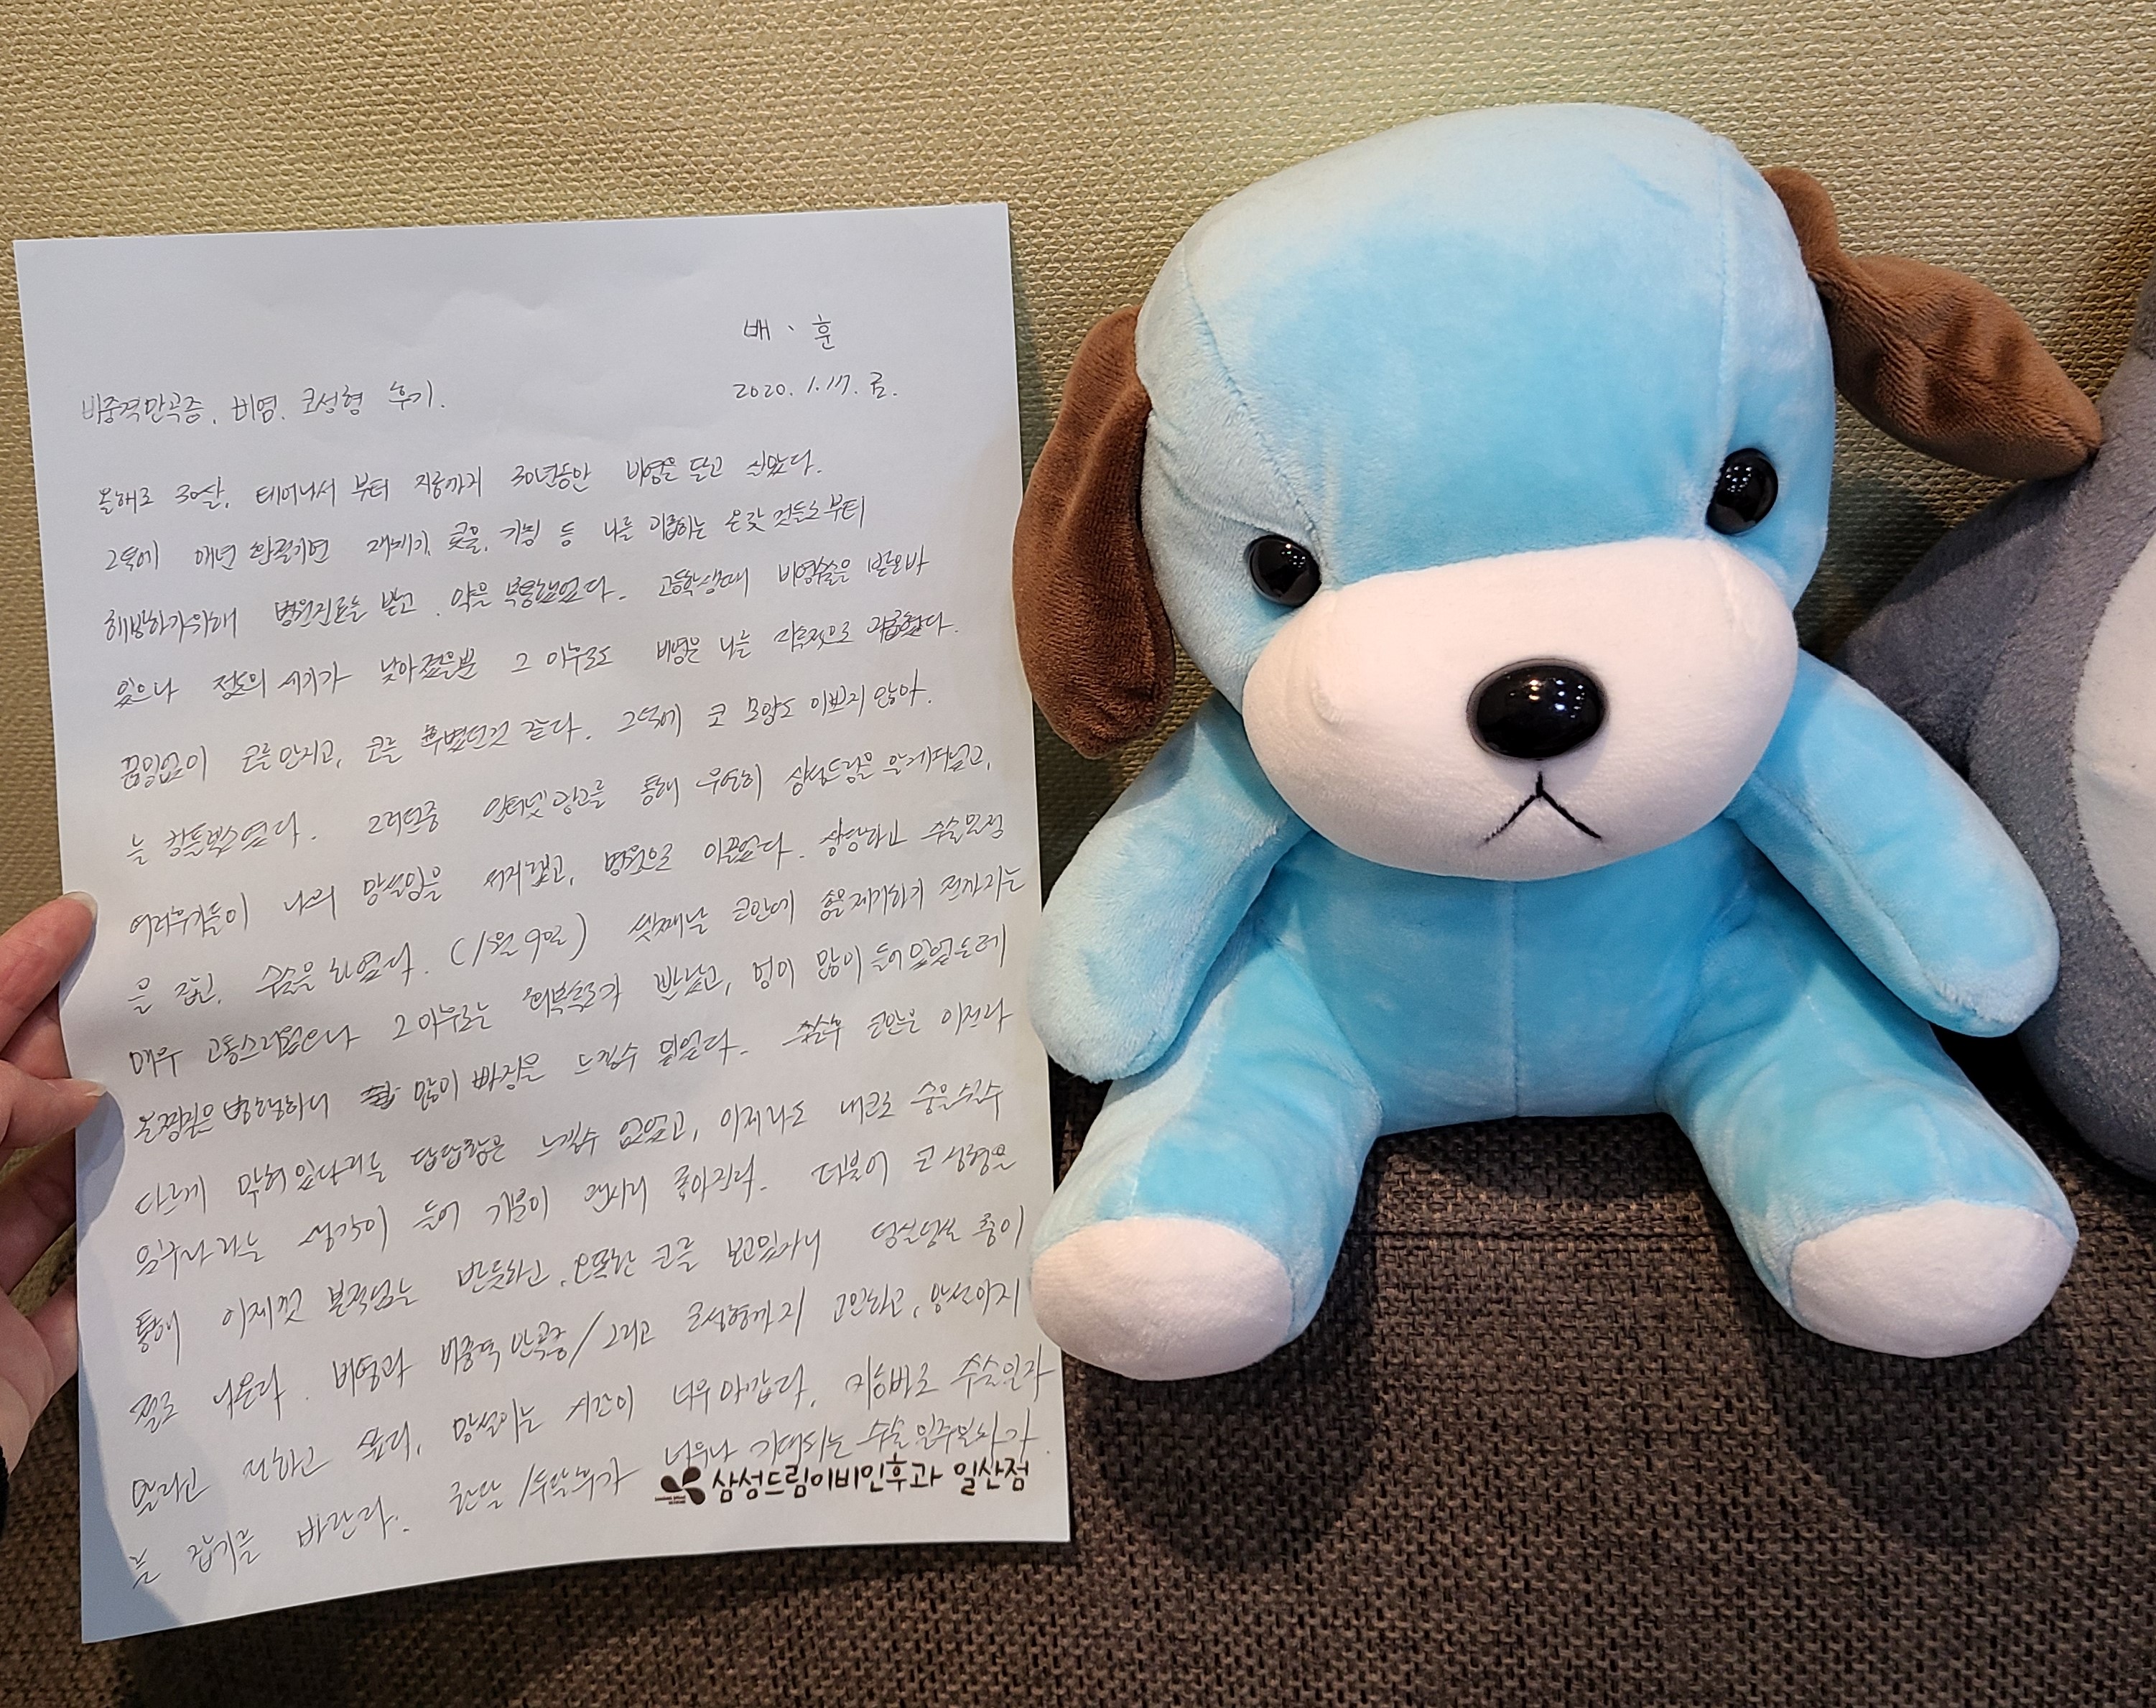 배 、 훈
2020. 1. 17. 금.
비중격만곡증, 비염, 코성형 후기.
올해로 30살, 태어나서 부터 지금까지 30년동안 비염을 달고 살았다.
그덕에 매년 환절기면 재채기, 콧물, 기침 등 나를 괴롭히는 온갖 것들로부터
해방하기위해 병원진료를 받고, 약을 복용했었다. 고등학생때 비염수술은 받은바
있으나 정도의 세기가 낮아졌을뿐 그 이후로도 비염은 나를 지속적으로 괴롭혔다.
끊임없이 코를 만지고, 코를 후볐던것 같다. 그덕에 코 모양도 이쁘지 않아.
늘 컴플렉스였다. 그러던중 인터넷 광고를 통해 우연히 삼성드림을 알게되었고,
여러후기들이 나의 망설임을 사라지게했고, 병원으로 이끌었다. 상담하고 수술일정
을 잡고, 수술을 하였다. (1월 9일) 셋째날 코안에 솜을제거하기 전까지는
매우 고통스러웠으나 그 이후로는 회복속도가 빨랐고, 멍이 많이 들어있었는데
온찜질을 병행하니 많이 빠짐을 느낄수 있었다. 수술후 코안은 이전과
다르게 막혀있다라는 답답함은 느낄수 없었고, 이제나도 내코로 숨을쉴수
있구나 라는 생각이 들어 기분이 굉장히 좋아진다. 더불어 코 성형을
통해 이제껏 본적없는 반듯하고, 오똑한 코를 보고있자니 덩실덩실 춤이
절로 나온다. 비염과 비중격 만곡증/그리고 코성형까지 고민하고, 망설이지
말라고 전하고 싶다, 망설이는 시간이 너무 아깝다, 지금바로 수술일자
를 잡기를 바란다. 한달/두달후가 너무나 기대되는 수술 일주일차가.
삼성드림이비인후과 일산점